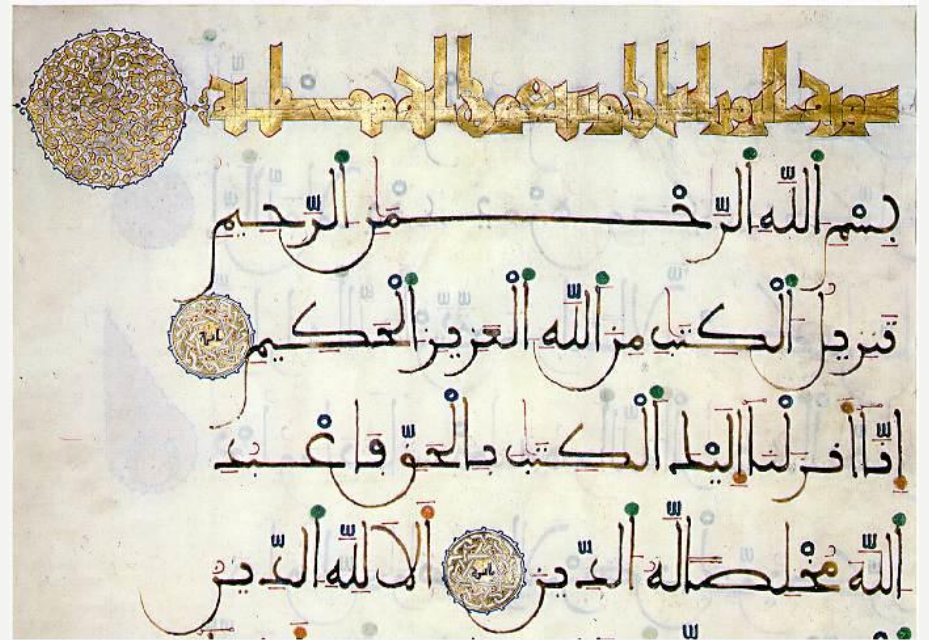 سورة الزمر
بِسْمِ اللَّهِ الرَّحْمَنِ الرَّحِيمِ
تَنزِيلُ الْكِتَبِ مِنَ اللَّهِ الْعَزِيزِ الْحَكِيمِ
إِنَّا أَنزَلْنَا إِلَيْكَ الْكِتَبَ بِالْحَقِّ فَاعْبُدِ
اللَّهَ مُخْلِصًا لَّهُ الدِّينَ أَلَا لِلَّهِ الدِّينُ